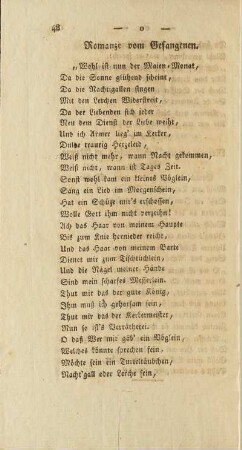 48 — o —
Romanze vom Gefangenen.
„Wohl ist nun der Maien-Monat,
Da die Sonne glühend scheint,
Da die Nachtigallen singen
Mit den Lerchen Widerstreit,
Da der Liebenden sich jeder
Neu dem Dienst der Liebe weiht,
Und ich Armer lieg' im Kerker,
Dulde traurig Herzeleid,
Weiß nicht mehr, wann Nacht gekommen,
Weiß nicht, wann ist Tages Zeit.
Sonst wohl kam ein kleines Vöglein,
Sang ein Lied im Morgenschein,
Hat ein Schütze mir's erschossen,
Wolle Gott ihm nicht verzeihn!
Ach das Haar von meinem Haupte
Bis zum Knie hernieder reicht,
Und das Haar von meinem Barte
Dienet mir zum Tischtüchlein,
Und die Nägel meiner Hände
Sind mein scharfes Messerlein.
Thut mir das der gute König,
Ihm muß ich gehorsam sein,
Thut mir das der Kerkermeister,
Nun so ist's Verrätherei.
O daß Wer mir gäb' ein Vöglein,
Welches könnte sprechen fein,
Möchte sein ein Turteltäubchen,
Nacht'gall oder Lerche sein,